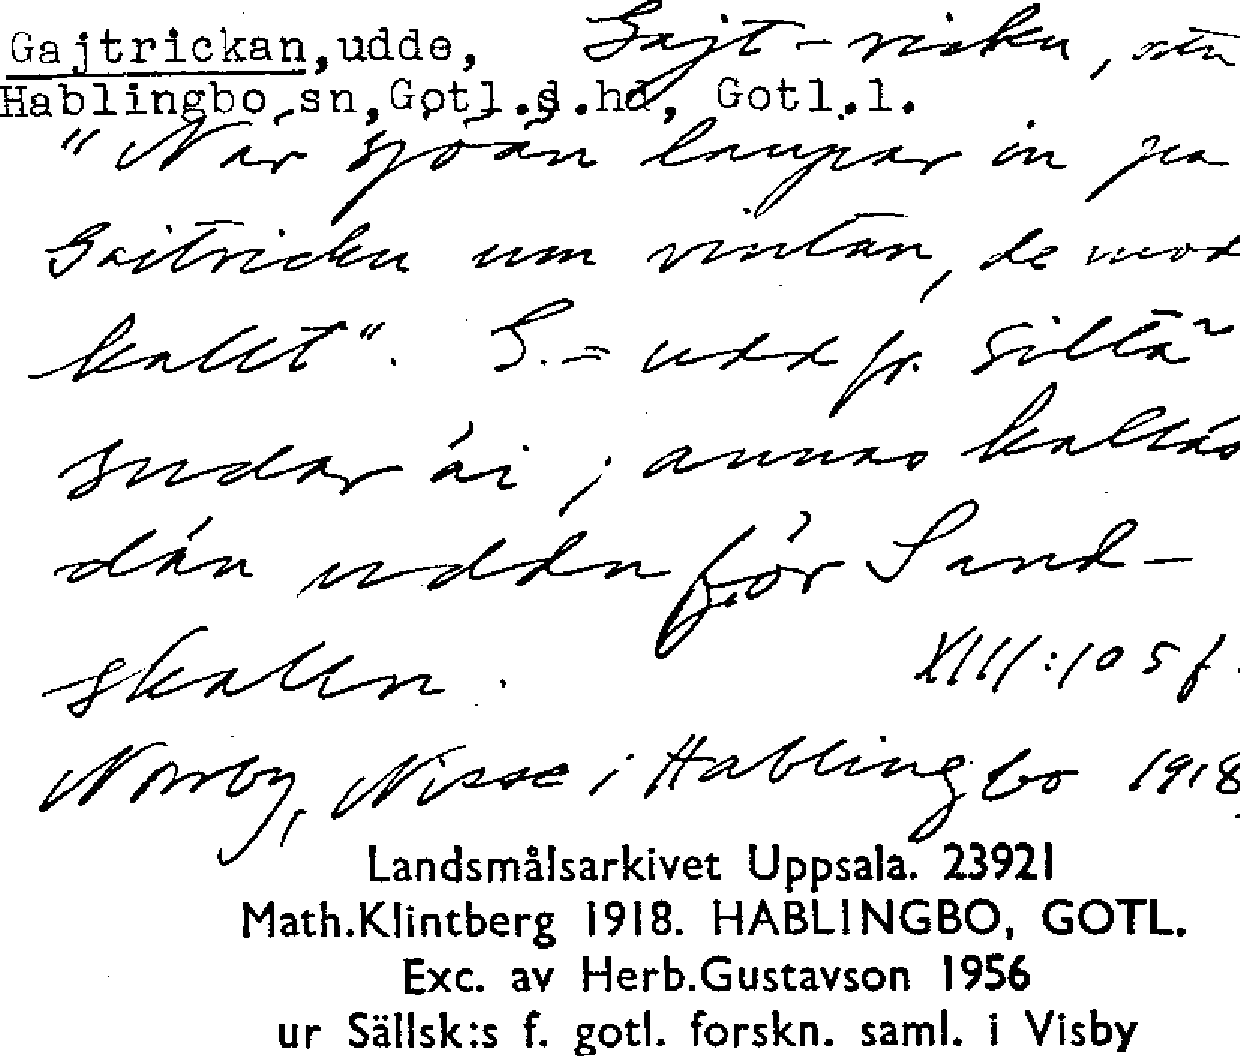 Gajtrickan, udde, Gajt-ricku,
Hablingbo sn, Gotl.s.hd, Gotl.l.
"När sjoän laupar in pa
Gaitricku um vintan, de mod
kallt". G. = udd fr.
sudar ái; annas kallás
dán uddn för Sand-
skalln. XIII:105 f.
Norrby, Nisse i Hablingbo 1918
Landsmålsarkivet Uppsala. 23921
Math.Klintberg 1918. HABLINGBO, GOTL.
Exc. av Herb.Gustavson 1956
ur Sällsk:s f. gotl. forskn. saml. i Visby